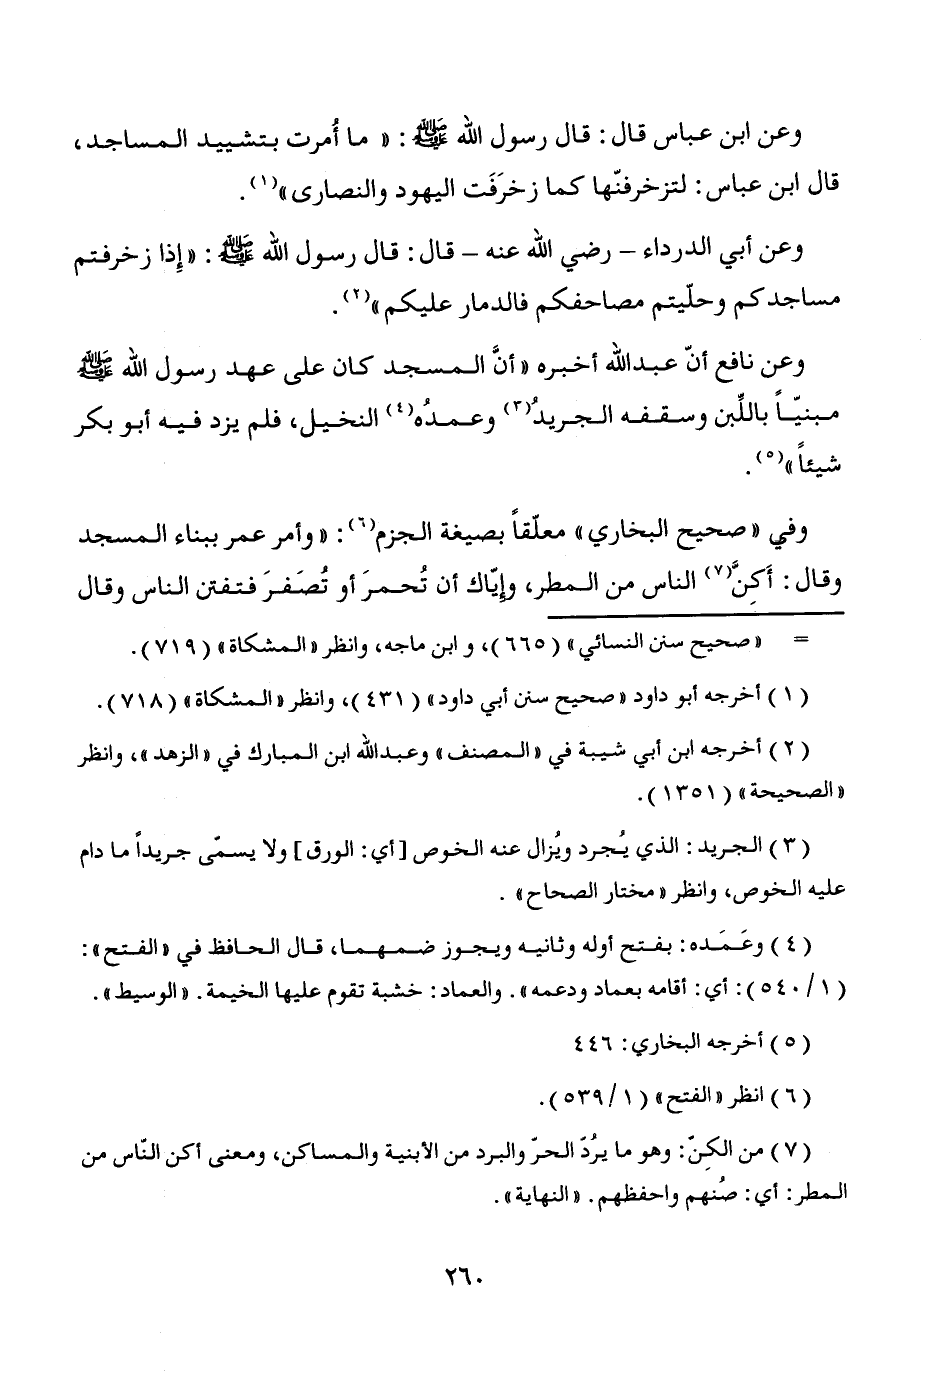 وعن ابن عباس قال: قال رسول الله ﷺ: « ما أُمرت بتشييد المساجد،
قال ابن عباس: لتزخرفنّها كما زخرَفَت اليهود والنصارى»(١).
وعن أبي الدرداء – رضي الله عنه – قال: قال رسول الله ﷺ: «إِذا زخرفتم
مساجدكم وحلّيتم مصاحفكم فالدمار عليكم»(٢).
وعن نافع أنّ عبدالله أخبره «أنَّ المسجد كان على عهد رسول الله ﷺ
مبنيّاً باللَّبِن وسقفه الجريدُ(٣) وعمدُه(٤) النخيل، فلم يزد فيه أبو بكر
شيئاً»(٥).
وفي «صحيح البخاري» معلّقاً بصيغة الجزم(٦): «وأمر عمر ببناء المسجد
وقال: أَكِنَّ(٧) الناس من المطر، وإيّاك أن تُحمرَ أو تُصَفرَ فتفتن الناس وقال
= «صحيح سنن النسائي» (٦٦٥)، و ابن ماجه، وانظر «المشكاة» (٧١٩).
(١) أخرجه أبو داود «صحيح سنن أبي داود» (٤٣١)، وانظر «المشكاة» (٧١٨).
(٢) أخرجه ابن أبي شيبة في «المصنف» وعبدالله ابن المبارك في «الزهد»، وانظر
«الصحيحة» (١٣٥١).
(٣) الجريد: الذي يُجرد ويُزال عنه الخوص [أي: الورق] ولا يسمّى جريداً ما دام
عليه الخوص، وانظر «مختار الصحاح» .
(٤) وعَمَده: بفتح أوله وثانيه ويجوز ضمهما، قال الحافظ في «الفتح»:
(١/ ٥٤٠): أي: أقامه بعماد ودعمه». والعماد: خشبة تقوم عليها الخيمة. «الوسيط».
(٥) أخرجه البخاري: ٤٤٦
(٦) انظر «الفتح» (١/ ٥٣٩).
(٧) من الكِنّ: وهو ما يرُدّ الحرّ والبرد من الأبنية والمساكن، ومعنى أكن النّاس من
المطر: أي: صُنهم واحفظهم. «النهاية».
٢٦٠